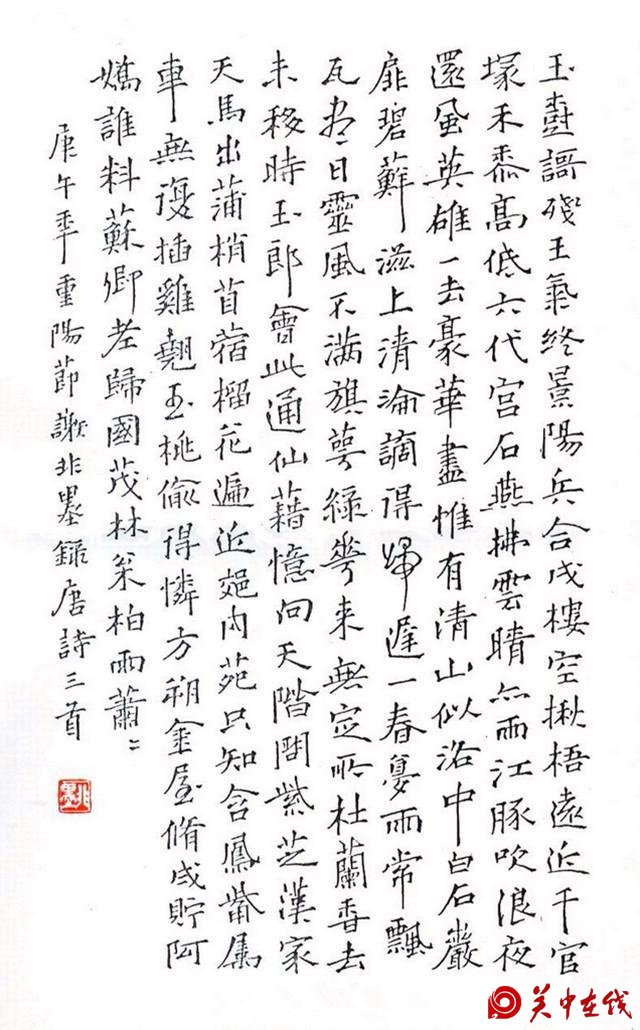 玉樹謌殘王氣終景陽兵合戍樓空楸梧遠近千官
塚禾黍髙低六代宫石燕拂雲晴亦雨江豚吹浪夜
還風英雄一去豪華盡惟有清山似洛中白石巖
扉碧蘚滋上清淪謫得歸遲一春夢雨常飄
瓦盡日靈風不满旗萼綠華来無定所杜蘭香去
未移時玉郎會此通仙藉憶向天階問紫芝漢家
天馬出蒲梢苜蓿榴花遍近郊内苑只知含鳳觜属
車無復插雞翹玉桃偷得憐方朔金屋脩成貯阿
嬌誰料蘇卿老歸國茂林枀柏雨蕭〻
庚午年重陽節謝非墨録唐詩三首
非墨
关中在线